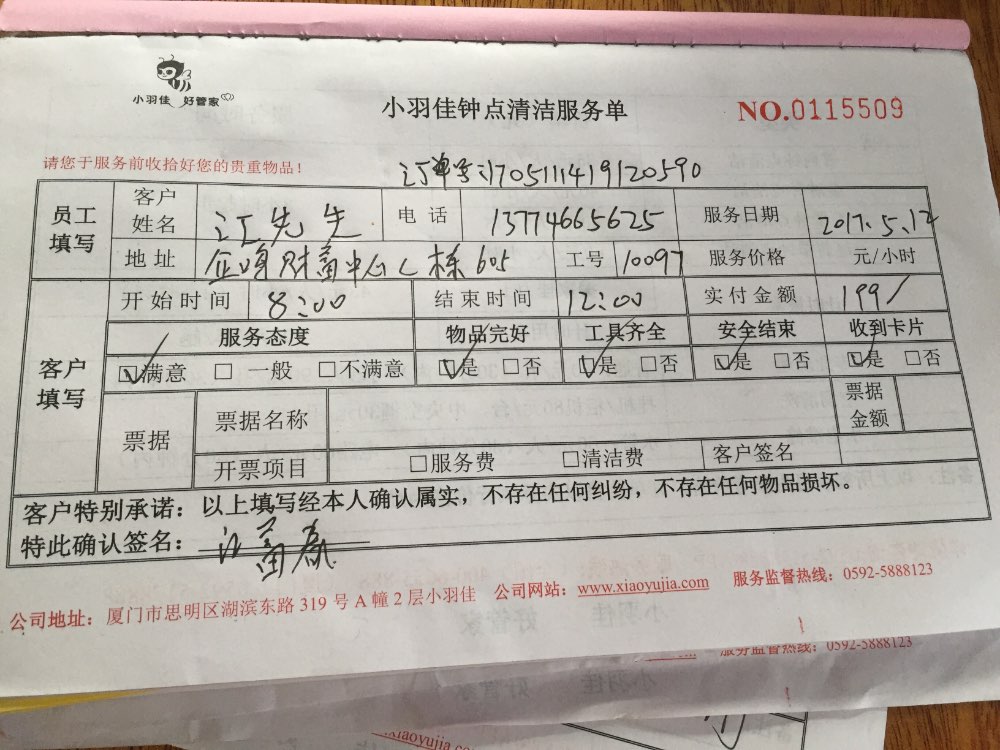 小羽佳 好管家
小羽佳钟点清洁服务单
NO.0115509
请您于服务前收拾好您的贵重物品！
订单号:170511141912059​0
员工填写 客户姓名 江先生 电话 13774665625 服务日期 2017.5.12
地址 企鸣财富中心C栋605 工号 10097 服务价格 元/小时
客户填写 开始时间 8:00 结束时间 12:00 实付金额 199/
服务态度 物品完好 工具齐全 安全结束 收到卡片
☑满意 □一般 □不满意 ☑是 □否 ☑是 □否 ☑是 □否 ☑是 □否
票据 票据名称 票据金额
开票项目 □服务费 □清洁费 客户签名
客户特别承诺：以上填写经本人确认属实，不存在任何纠纷，不存在任何物品损坏。
特此确认签名：
公司地址：厦门市思明区湖滨东路 319 号 A 幢 2 层小羽佳 公司网站：www.xiaoyujia.com 服务监督热线：0592-5888123
服务监督热线：0592-5888123
xiaoyujia.com